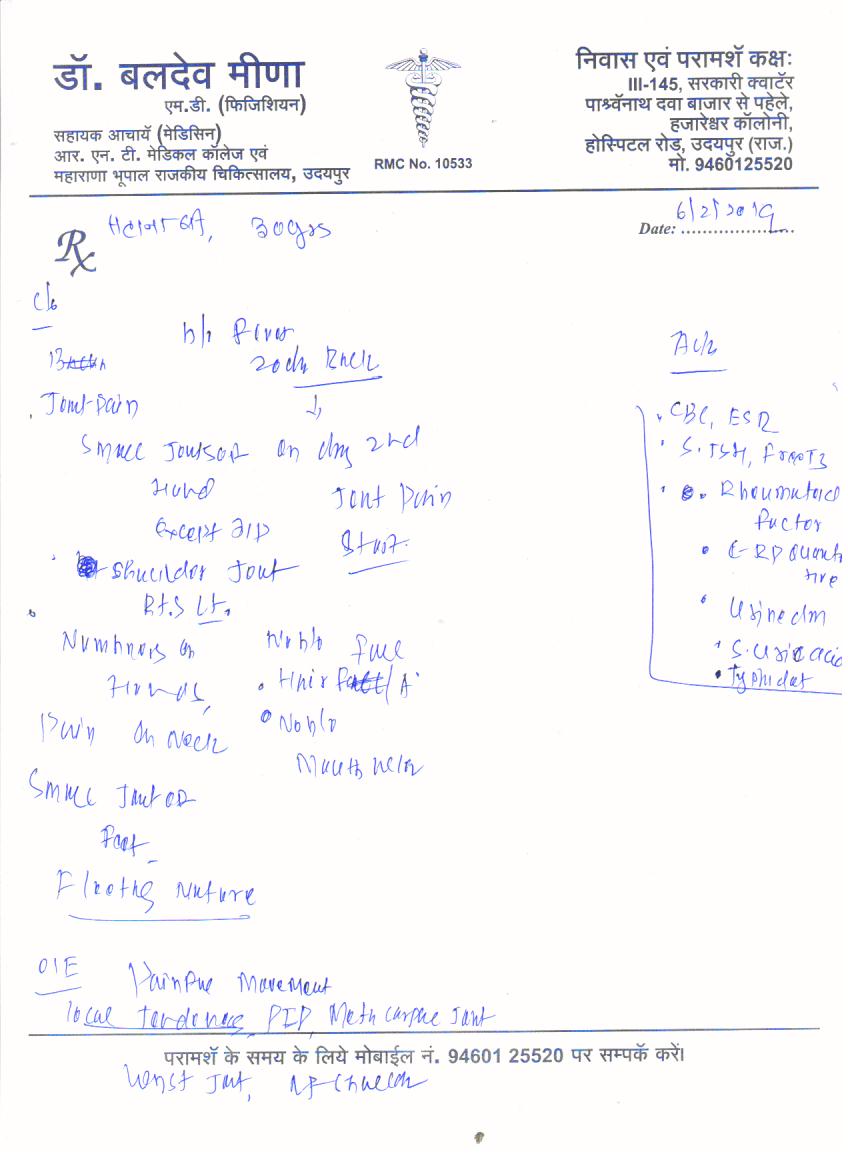 डॉ. बलदेव मीणा
एम.डी. (फिजिशियन)
सहायक आचार्य (मेडिसिन)
आर. एन. टी. मेडिकल कॉलेज एवं
महाराणा भूपाल राजकीय चिकित्सालय, उदयपुर
RMC No. 10533
निवास एवं परामर्श कक्षः
III-145, सरकारी क्वार्टर
पार्श्वनाथ दवा बाजार से पहेले,
हजारेश्वर कॉलोनी,
होस्पिटल रोड़, उदयपुर (राज.)
मो. 9460125520
Rx
30yrs
Date: 6/2/2019
c/o
h/o fever
20 day Back
Joint pain
Small Joints of
Hand
Except DIP
Shoulder Joint
Rt. & Lt.
Numbness on
Hands,
Pain on Neck
Small Joint of
Foot
Fleeting Nature
on day 2nd
Joint Pain
Start.
No h/o
Hair
No h/o
Mouth ulcer
Adv
CBC, ESR
S. TSH, Free T3
Rheumatoid
factor
CRP Quanti
tive
Urine
S. Uric acid
Typhidot
O/E Painful Movement
local tenderness, PIP, Metacarpal Joint
परामर्श के समय के लिये मोबाईल नं. 94601 25520 पर सम्पर्क करें।
Wrist Joint,